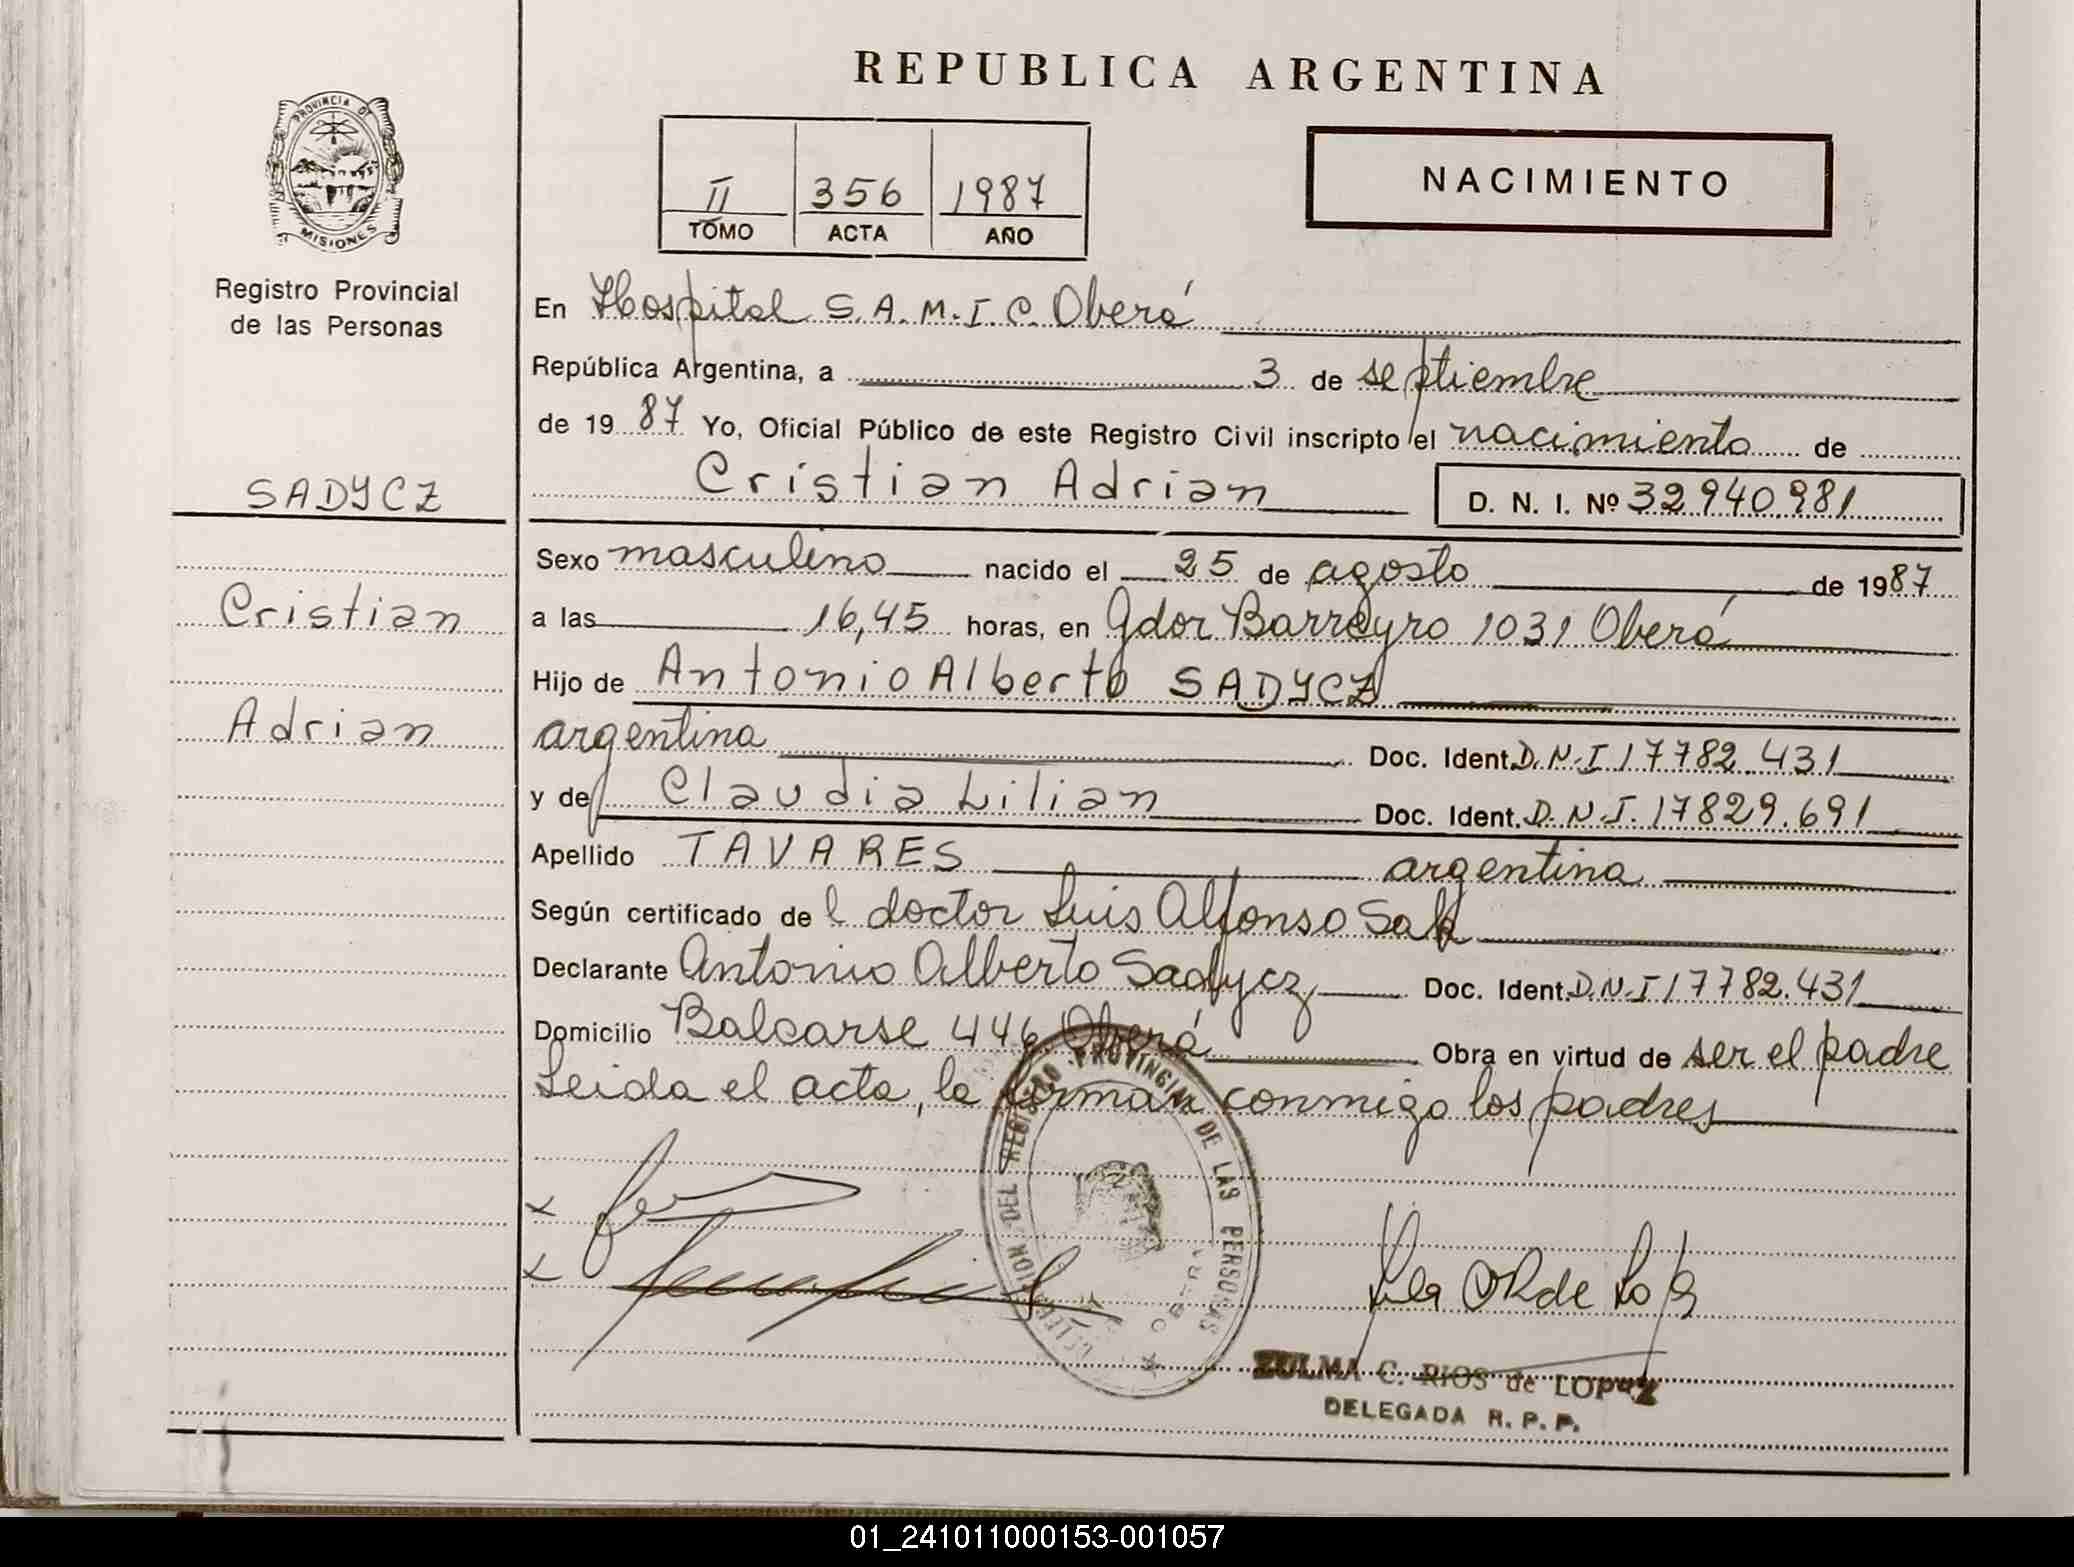 REPUBLICA ARGENTINA
PROVINCIA DE
MISIONES
II 356 1987
TOMO ACTA AÑO
NACIMIENTO
Registro Provincial
de las Personas
En Hospital S.A.M.I.C. Oberá
República Argentina, a 3 de septiembre
de 1987 Yo, Oficial Público de este Registro Civil inscripto el nacimiento de
SADYCZ
Cristian Adrian D. N. I. Nº 32940981
Sexo masculino nacido el 25 de agosto de 1987
Cristian
a las 16,45 horas, en Gdor Barreyro 1031 Oberá
Hijo de Antonio Alberto SADYCZ
Adrian
argentina Doc. Ident. D.N.I 17782.431
y de Claudia Lilian Doc. Ident. D.N.I. 17829.691
Apellido TAVARES argentina
Según certificado de l doctor Luis Alfonso
Declarante Antonio Alberto Sadycz Doc. Ident. D.N.I 17782.431
Domicilio Balcarse 446 Oberá Obra en virtud de ser el padre
Leida el acta, la firman conmigo los padres
DELEGACION DEL REGISTRO PROVINCIAL DE LAS PERSONAS
OBERA
ZULMA C. RIOS de LOPEZ
DELEGADA R. P. P.
01_241011000153-001057